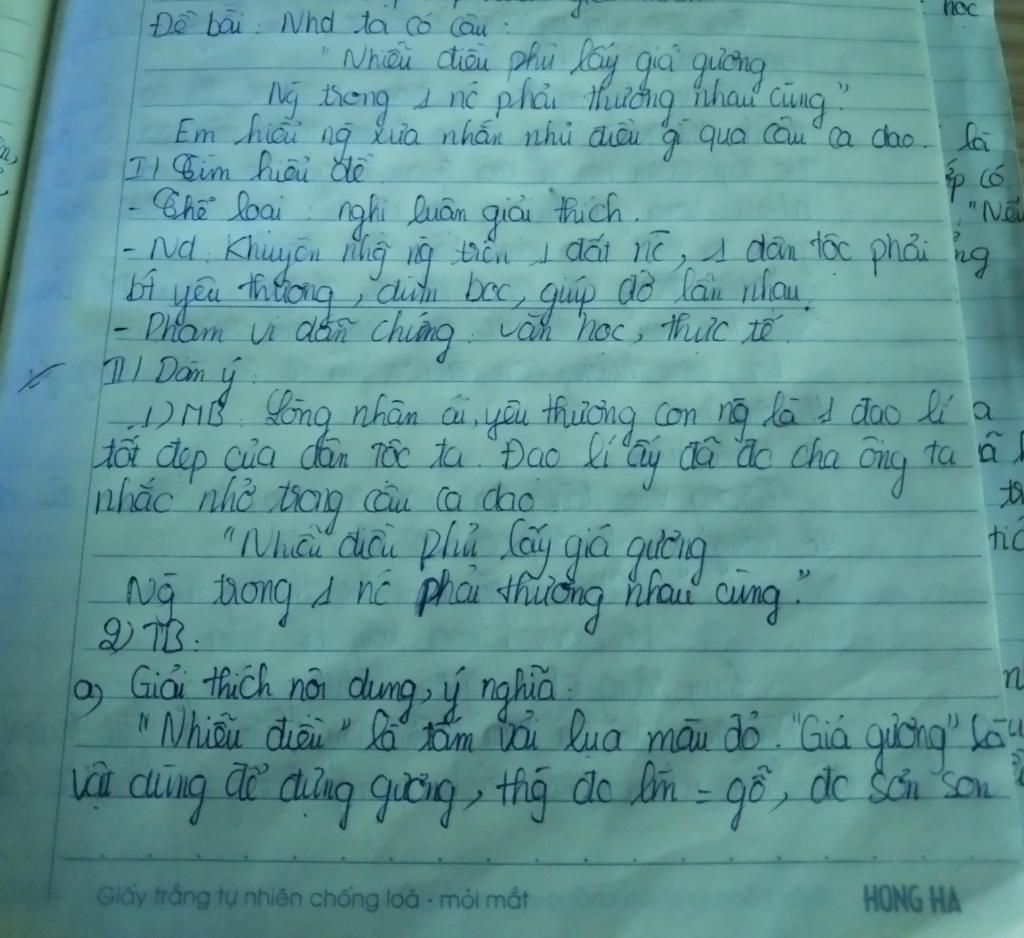 học
Đề bài: Nhd ta có câu:
"Nhiễu điều phủ lấy giá gương
Ng̃ trong 1 nc phải thương nhau cùng".
Em hiểu ng xưa nhắn nhủ điều gì qua câu ca dao.
là
I) Tìm hiểu đề
ếp có
- Thể loại: nghị luận giải thích.
"Nếu
- Nd: Khuyên nhg̃ ng̃ trên 1 đất nc, 1 dân tộc phải
ng
bt yêu thương, đùm bọc, giúp đỡ lẫn nhau.
- Phạm vi dẫn chứng: văn học, thực tế.
II) Dàn ý:
1) MB: Lòng nhân ái, yêu thương con ng̃ là 1 đạo lí
tốt đẹp của dân tộc ta. Đạo lí ấy đã đc cha ông ta
nhắc nhở trong câu ca dao
"Nhiễu điều phủ lấy giá gương
Ng̃ trong 1 nc phải thương nhau cùng."
2) TB:
a) Giải thích nội dung, ý nghĩa:
"Nhiễu điều" là tấm vải lụa màu đỏ. "Giá gương" là
vật dùng để đựng gương, thg đc lm = gỗ, đc sơn son
Giấy trắng tự nhiên chống loá - mỏi mắt
HONG HA